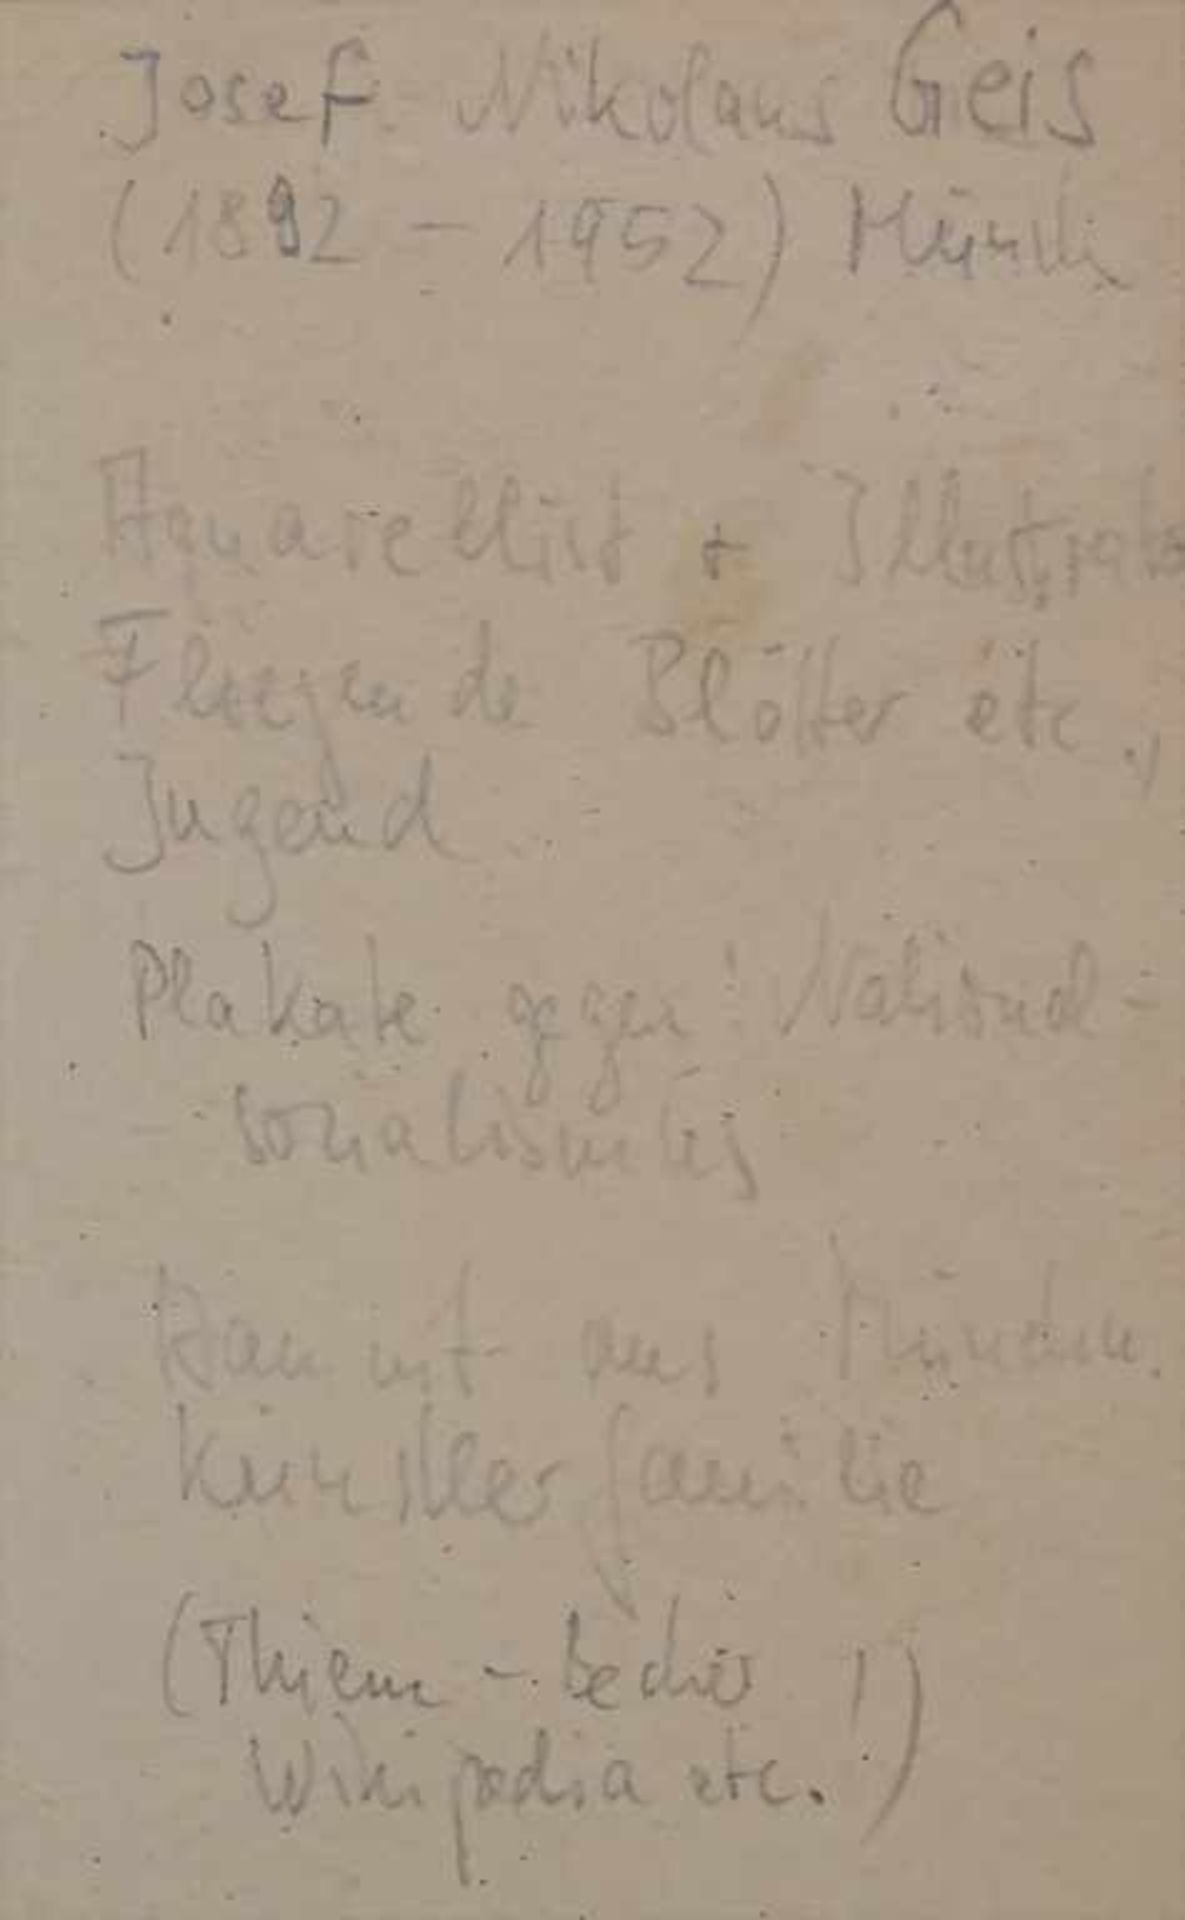 Josef Nikolaus Geis
(1892 - 1952) Münch
Aquarellist + Illustrato
Fliegende Blätter etc.,
Jugend
Plakate gegen National-
sozialismus
kommt aus Münchn.
Künstlerfamilie
(Thieme - Becker !)
Wikipedia etc.